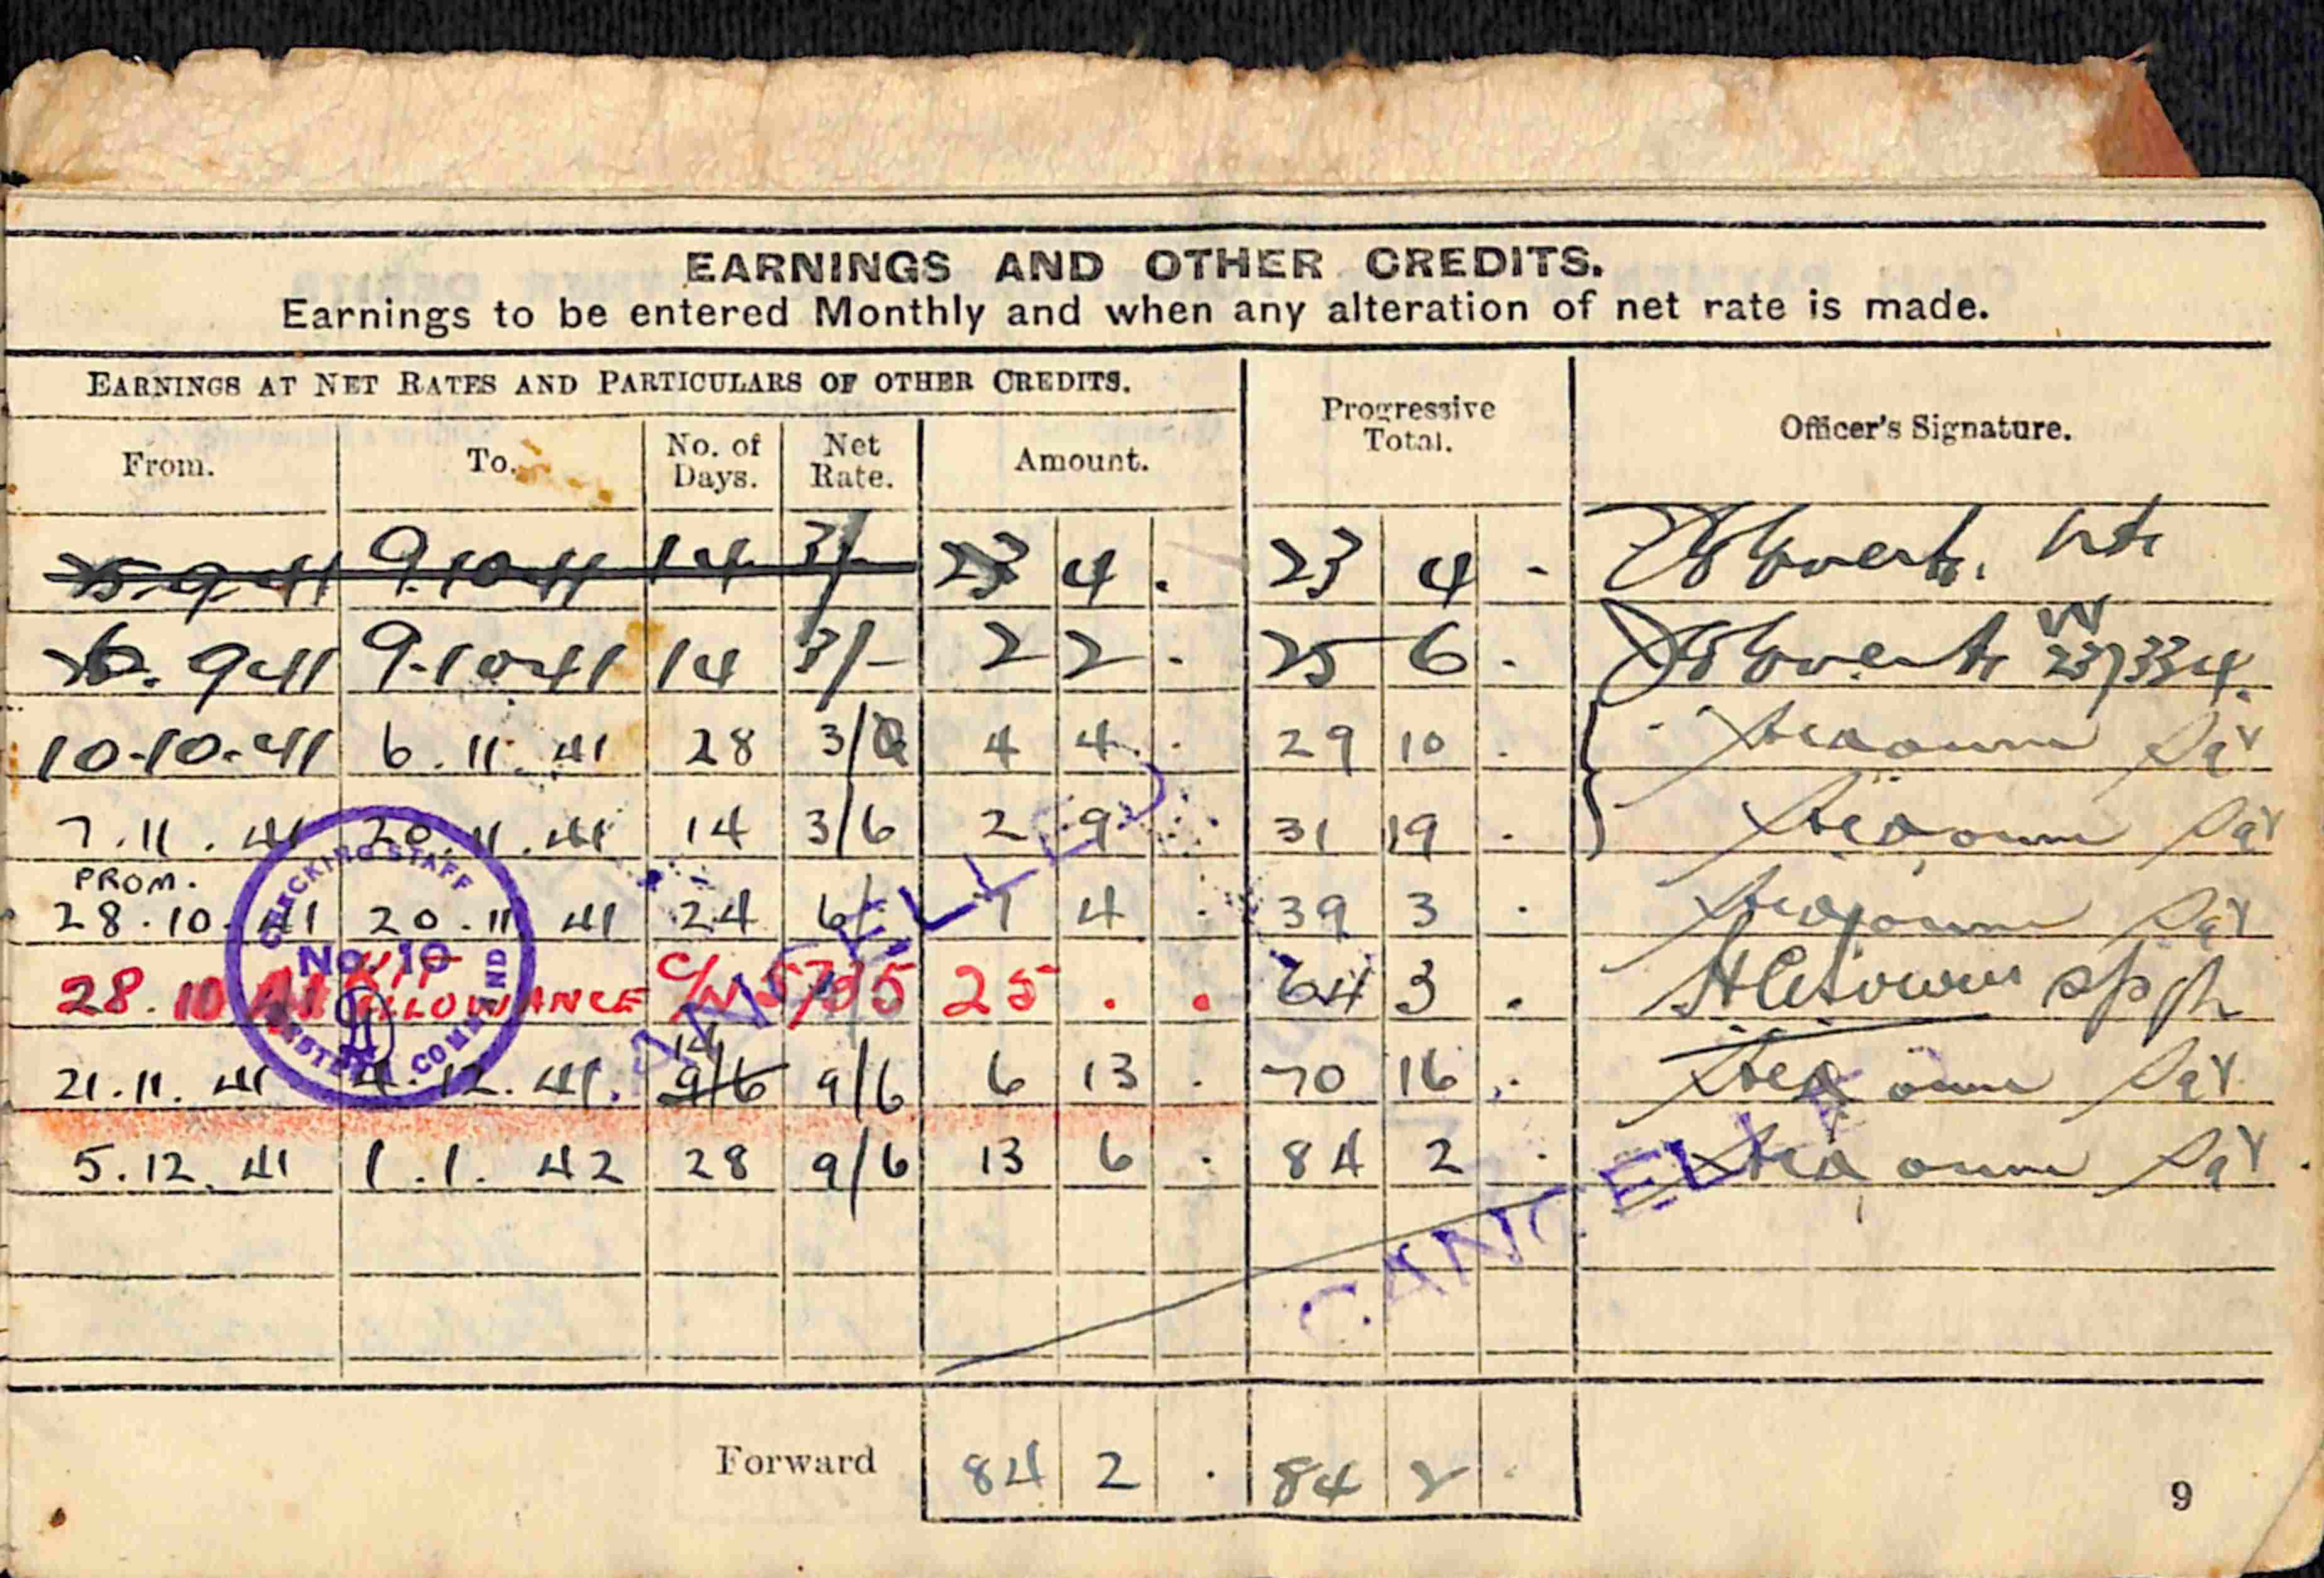 EARNINGS AND OTHER CREDITS.
Earnings to be entered Monthly and when any alteration of net rate is made.
EARNINGS AT NET RATES AND PARTICULARS OF OTHER CREDITS. Progressive Total. Officer's Signature.
From. To. No. of Days. Net Rate. Amount.
9.10.41 14 3/- 23 4 . 23 4 -
9.41 9.10.41 14 3/- 2 2 - 25 6 -
10.10.41 6.11.41 28 3/ 4 4 . 29 10 .
7.11.41 20.11.41 14 3/6 2 9 . 31 19 .
PROM.
28.10.41 20.11.41 24 6/ 7 4 . 39 3 .
28.10.41 ALLOWANCE 25 . . 64 3 .
14
21.11.41 4.12.41. 9/6 9/6 6 13 . 70 16 .
5.12.41 1.1.42 28 9/6 13 6 . 84 2 .
Forward 84 2 . 84 2 .
9
CHECKING STAFF
No. 10
COMMAND
CANCELLED
CANCELLED